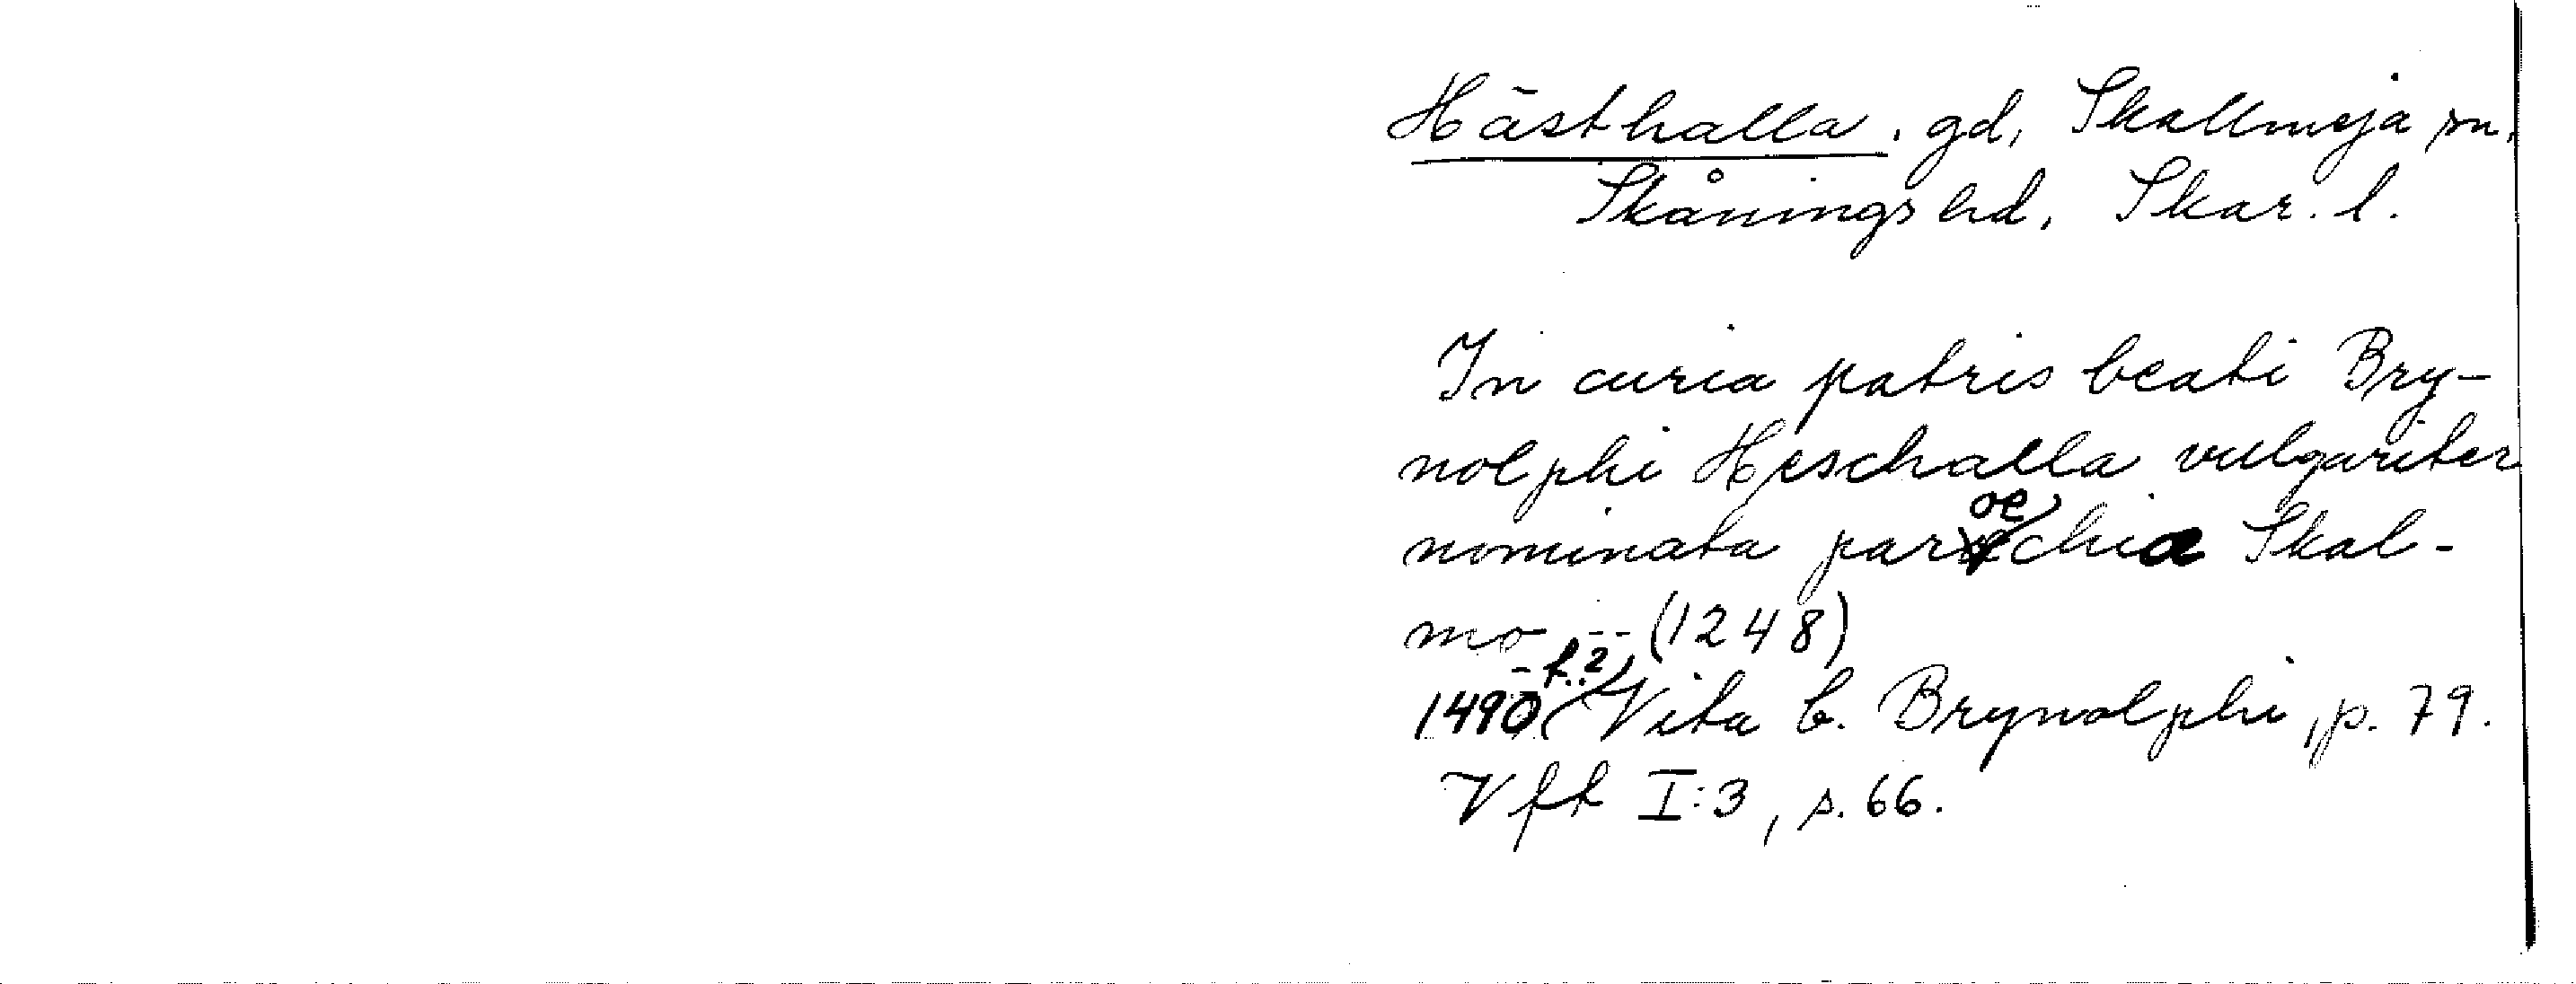 Hästhalla. gd, Skallmeja sn,
Skånings hd, Skar. l.
In curia patris beati Bry-
nolphi Heschalla vulgariter
nominata paroechia Skal-
mo -- (1248)
1490-t.? Vita b. Brynolphi, p. 79.
Vft I:3, s. 66.